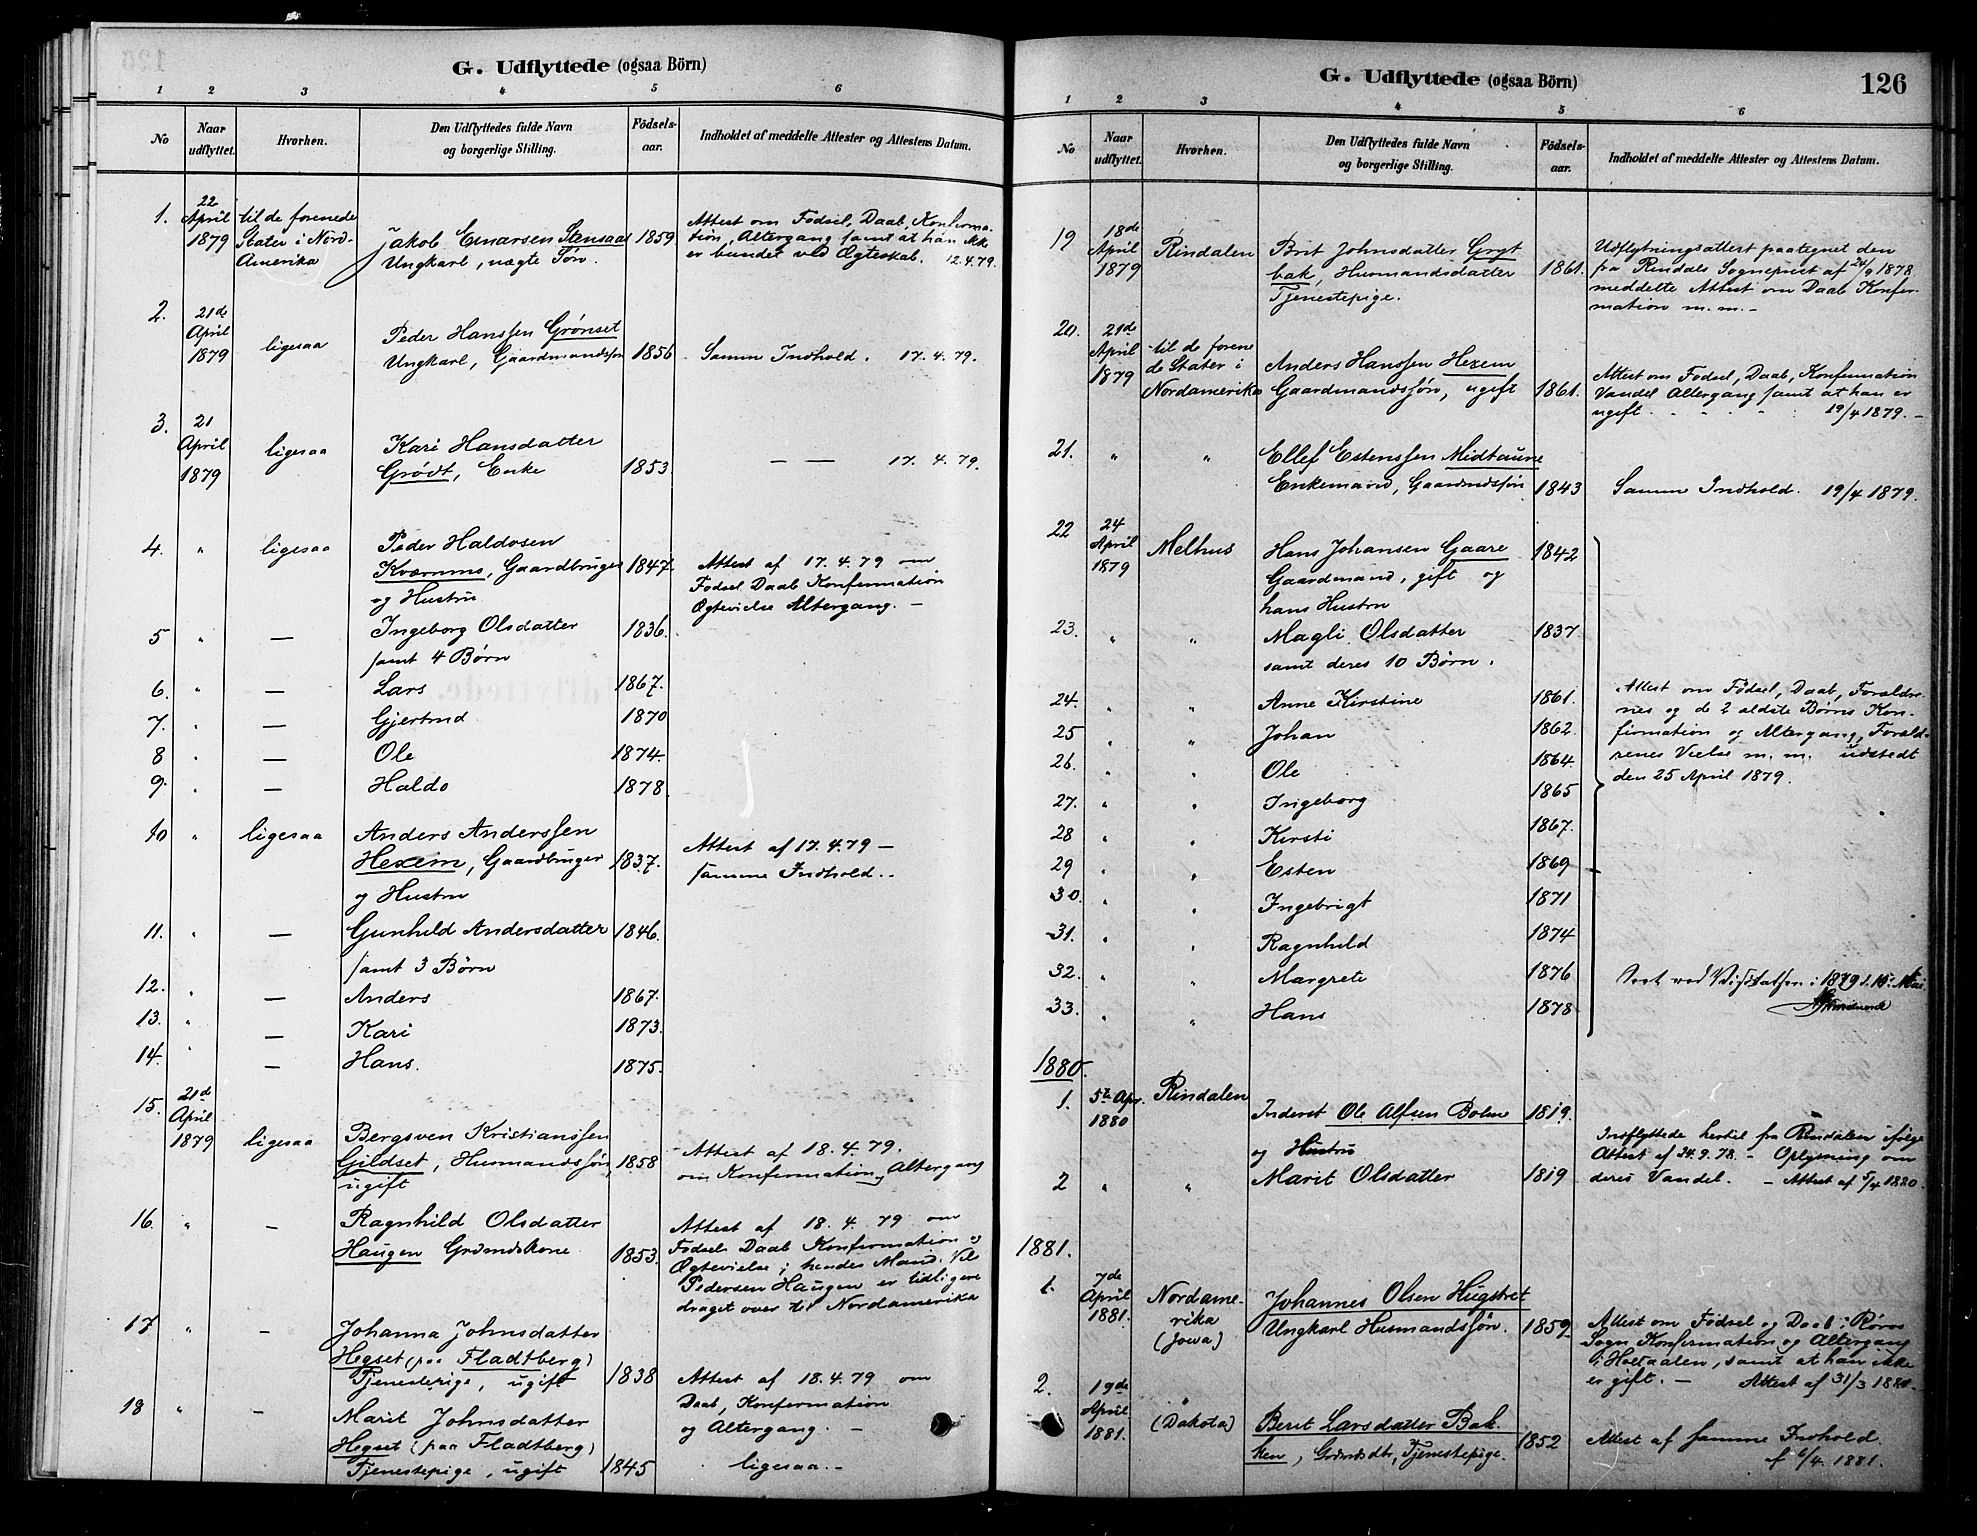 G. Udflyttede (ogsaa Börn)
1 2 3 4 5 6
No
Naar udflyttet.
Hvorhen.
Den Udflyttedes fulde Navn og borgerlige Stilling.
Födsels-aar.
Indholdet af meddelte Attester og Attestens Datum.
1. 22 April 1879 til de forenede Stater i Nord-Amerika
Jakob Enarsen Stensaas 1859
Ungkarl, uægte Søn.
Attest om Fødsel, Daab, Konfirma-
tion, Altergang samt at han ikke
er bundet ved Ægteskab. 12.4.79.
2. 21de April 1879 ligesaa
Peder Hanssen Grønset
Ungkarl, Gaardmandssøn 1856 Samme Indhold. 17.4.79.
3. 21 April 1879 ligesaa
Kari Hansdatter
Grødt, Enke 1853. — — 17.4.79.
4. " ligesaa Peder Haldosen
Kværnmo, Gaardbruger 1847.
og Hustru
Attest af 17.4.79 om
Fødsel Daab Konfirmation
Ægtevielse Altergang. —
5 " — Ingeborg Olsdatter 1836.
samt 4 Børn
6. " — Lars 1867.
7. " — Gjertrud 1870
8 " — Ole 1874.
9. " — Haldo 1878.
10 " ligesaa Anders Anderssen
Hexem, Gaardbruger 1837.
og Hustru
Attest af 17.4.79 —
samme Indhold..
11. " — Gunhild Andersdatter 1846.
samt 3 Børn
12. " — Anders 1867.
13. " — Kari 1873.
14. " — Hans. 1875.
15. 21de April 1879 ligesaa
Bergsven Kristianssen
Gildset, Husmandssøn, 1858
ugift
Attest af 18.4.79.
om Konfirmation, Altergang
16. " — Ragnhild Olsdatter
Haugen Grdmdskone 1853.
Attest af 18.4.79 om
Fødsel Daab Konfirmation og
Ægtevielse; hendes Mand
Pedersen Haugen er tidligere
draget over til Nordamerika
17 " — Johanna Johnsdatter
Hegset (paa Fladtberg)
Tjenestepige, ugift 1838
Attest af 18.4.79 om
Daab, Konfirmation
og Altergang. —
18 " — Marit Johnsdatter
Hegset (paa Fladtberg)
Tjenestepige, ugift 1845 ligesaa.—
G. Udflyttede (ogsaa Börn)
126
1 2 3 4 5 6
No
Naar udflyttet.
Hvorhen.
Den Udflyttedes fulde Navn og borgerlige Stilling.
Födsels-aar.
Indholdet af meddelte Attester og Attestens Datum.
19 18de April 1879 Rindalen
Brit Johnsdatter Gryt
bak, Husmandsdatter 1861.
Tjenestepige.
Udflytningsattest paategnet den
fra Rindals Sogneprest af 24/9 1878
meddelte Attest om Daab Konfir-
mation m.m.—
20. 21de April 1879 til de forene
de Stater i
Nordamerika
Anders Hanssen Hexem
Gaardmandssøn, ugift 1861.
Attest om Fødsel, Daab, Konfirmation
Vandel Altergang samt at han er
ugift. 19/4 1879. —
21. " " Ellef Estenssen Midtaune
Enkemand, Gaardmdssøn 1843 Samme Indhold. 19/4 1879.
22 24 April 1879 Melhus Hans Johansen Gaare 1842
Gaardmand, gift og
hans Hustru
23. " " Magli Olsdatter 1837
samt deres 10 Børn.
24. " " Anne Kirstine 1861.
25 " " Johan 1862.
26. " " Ole 1864.
27. " " Ingeborg 1865
28 " " Kirsti 1867.
29 " " Esten 1869
30. " " Ingebrigt 1871
31. " " Ragnhild 1874
32. " " Margrete 1876
33. " " Hans 1878
Attest om Fødsel, Daab, Forældre-
nes og de 2 ældste Børns Kon-
firmation og Altergang, Foræld-
renes Vielse m.m. udstedt
den 25 April 1879.
ved Visitatsen i 1879 d. 15. Mai
1880.
1. 5te Apr. 1880 Rindalen
Inderst Ole Alfsen Bolme 1819.
og Hustru
2 " " Marit Olsdatter 1819
Indflyttede hertil fra Rindalen ifølge
Attest af 24.9.78. — Oplysning om
deres Vandel. — Attest af 5/4 1880.
1881.
1. 7de April 1881. Nordame-
rika
(Jowa)
Johannes Olsen Hugstret
Ungkarl Husmandssøn. 1859.
Attest om Fødsel og Daab i Røros
Sogn, Konfirmation og Altergang
i Holtaalen, samt at han ikke
er gift. — Attest af 31/3 1881.
2. 19de April 1881. " (Dakota)
Berit Larsdatter Bak-
ken, Grdmdsdtr, Tjenestepige. 1852
Attest af samme Indhold.
af 6/4 1881.